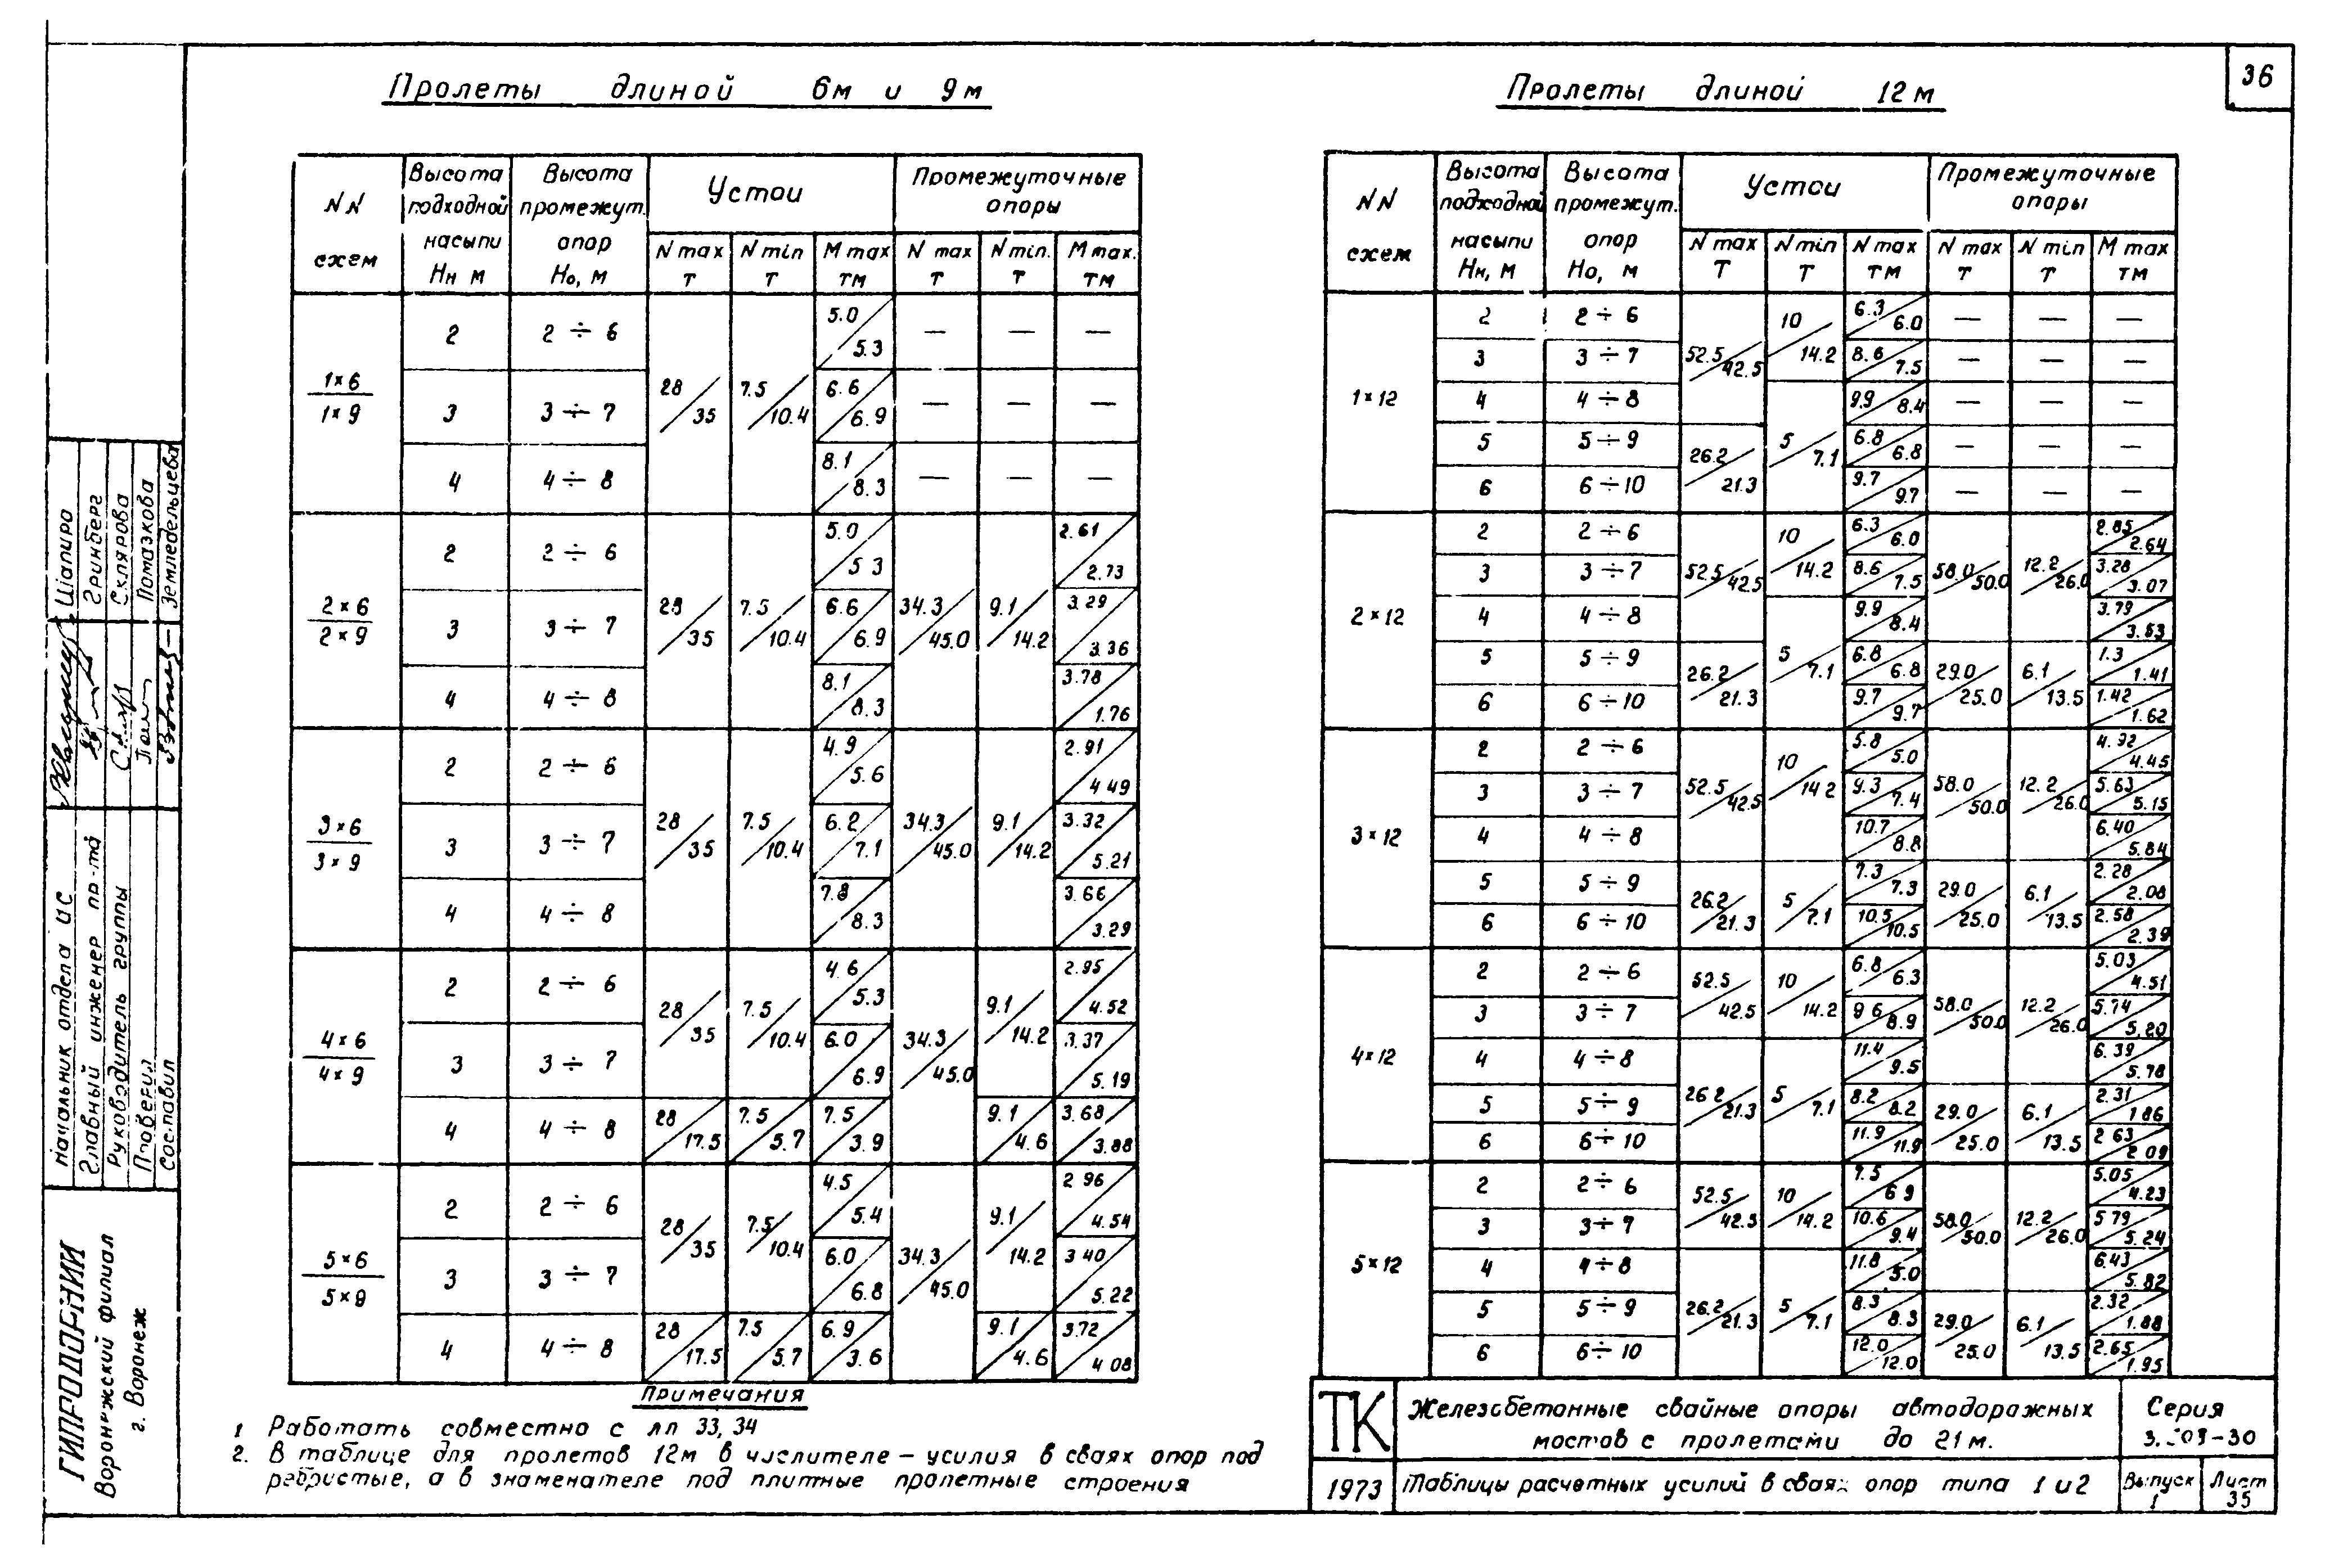 36
Пролеты длиной 6м и 9м
NN схем | Высота подходной насыпи Нн м | Высота промежут. опор Но, м | Устои | Промежуточные опоры
N max Т | N min Т | M max ТМ | N max Т | N min. Т | M max. ТМ
1×6 / 1×9
2 | 2 ÷ 6 | 28/35 | 7.5/10.4 | 5.0/5.3 | — | — | —
3 | 3 ÷ 7 | 6.6/6.9 | — | — | —
4 | 4 ÷ 8 | 8.1/8.3 | — | — | —
2×6 / 2×9
2 | 2 ÷ 6 | 28/35 | 7.5/10.4 | 5.0/5 3 | 34.3/45.0 | 9.1/14.2 | 2.61/2.73
3 | 3 ÷ 7 | 6.6/6.9 | 3.29/3.36
4 | 4 ÷ 8 | 8.1/8.3 | 3.78/1.76
3×6 / 3×9
2 | 2 ÷ 6 | 28/35 | 7.5/10.4 | 4.9/5.6 | 34.3/45.0 | 9.1/14.2 | 2.91/4 49
3 | 3 ÷ 7 | 6.2/7.1 | 3.32/5.21
4 | 4 ÷ 8 | 7.8/8.3 | 3.66/3.29
4×6 / 4×9
2 | 2 ÷ 6 | 28/35 | 7.5/10.4 | 4.6/5.3 | 34.3/45.0 | 9.1/14.2 | 2.95/4.52
3 | 3 ÷ 7 | 6.0/6.9 | 3.37/5.19
4 | 4 ÷ 8 | 28/17.5 | 7.5/5.7 | 7.5/3.9 | 9.1/4.6 | 3.68/3.88
5×6 / 5×9
2 | 2 ÷ 6 | 28/35 | 7.5/10.4 | 4.5/5.4 | 34.3/45.0 | 9.1/14.2 | 2 96/4.54
3 | 3 ÷ 7 | 6.0/6.8 | 3 40/5.22
4 | 4 ÷ 8 | 28/17.5 | 7.5/5.7 | 6.9/3.6 | 9.1/4.6 | 3.72/4 08
Примечания
1 Работать совместно с лл 33, 34
2. В таблице для пролетов 12м в числителе – усилия в сваях опор под
ребристые, а в знаменателе под плитные пролетные строения
Пролеты длиной 12м
NN схем | Высота подходной насыпи Нн, м | Высота промежут. опор Но, м | Устои | Промежуточные опоры
N max Т | N min Т | N max ТМ | N max Т | N min Т | M max ТМ
1×12
2 | 2 ÷ 6 | 52.5/42.5 | 10/14.2 | 6.3/6.0 | — | — | —
3 | 3 ÷ 7 | 8.6/7.5 | — | — | —
4 | 4 ÷ 8 | 5/7.1 | 9.9/8.4 | — | — | —
5 | 5 ÷ 9 | 26.2/21.3 | 6.8/6.8 | — | — | —
6 | 6 ÷ 10 | 9.7/9.7 | — | — | —
2×12
2 | 2 ÷ 6 | 52.5/42.5 | 10/14.2 | 6.3/6.0 | 58.0/50.0 | 12.2/26.0 | 2.85/2.64
3 | 3 ÷ 7 | 8.6/7.5 | 3.28/3.07
4 | 4 ÷ 8 | 5/7.1 | 9.9/8.4 | 3.79/3.53
5 | 5 ÷ 9 | 26.2/21.3 | 6.8/6.8 | 29.0/25.0 | 6.1/13.5 | 1.3/1.41
6 | 6 ÷ 10 | 9.7/9.7 | 1.42/1.62
3×12
2 | 2 ÷ 6 | 52.5/42.5 | 10/14 2 | 5.8/5.0 | 58.0/50.0 | 12.2/26.0 | 4.92/4.45
3 | 3 ÷ 7 | 9.3/7.4 | 5.63/5.15
4 | 4 ÷ 8 | 10.7/8.8 | 6.40/5.84
5 | 5 ÷ 9 | 26.2/21.3 | 5/7.1 | 7.3/7.3 | 29.0/25.0 | 6.1/13.5 | 2.28/2.08
6 | 6 ÷ 10 | 10.5/10.5 | 2.58/2.39
4×12
2 | 2 ÷ 6 | 52.5/42.5 | 10/14.2 | 6.8/6.3 | 58.0/50.0 | 12.2/26.0 | 5.03/4.51
3 | 3 ÷ 7 | 9 6/8.9 | 5.74/5.20
4 | 4 ÷ 8 | 26 2/21.3 | 5/7.1 | 11.4/9.5 | 6.39/5.78
5 | 5 ÷ 9 | 8.2/8.2 | 29.0/25.0 | 6.1/13.5 | 2.31/1 86
6 | 6 ÷ 10 | 11.9/11.9 | 2 63/2 09
5×12
2 | 2 ÷ 6 | 52.5/42.5 | 10/14.2 | 7.5/6 9 | 58.0/50.0 | 12.2/26.0 | 5.05/4.23
3 | 3 ÷ 7 | 10.6/9.4 | 5 79/5.24
4 | 4 ÷ 8 | 26.2/21.3 | 5/7.1 | 11.8/5.0 | 6.43/5.82
5 | 5 ÷ 9 | 8.3/8.3 | 29.0/25.0 | 6.1/13.5 | 2.32/1.88
6 | 6 ÷ 10 | 12.0/12.0 | 2.65/1.95
ТК
Железобетонные свайные опоры автодорожных
мостов с пролетами до 21м.
Серия
3.503-30
1973
Таблицы расчетных усилий в сваях опор типа 1 и 2
Выпуск
1
Лист
35
Начальник отдела ИС Шапиро
Главный инженер пр-та Гринберг
Руководитель группы Склярова
Проверил Помазкова
Составил Земледельцева
ГИПРОДОРНИИ
Воронежский филиал
г. Воронеж